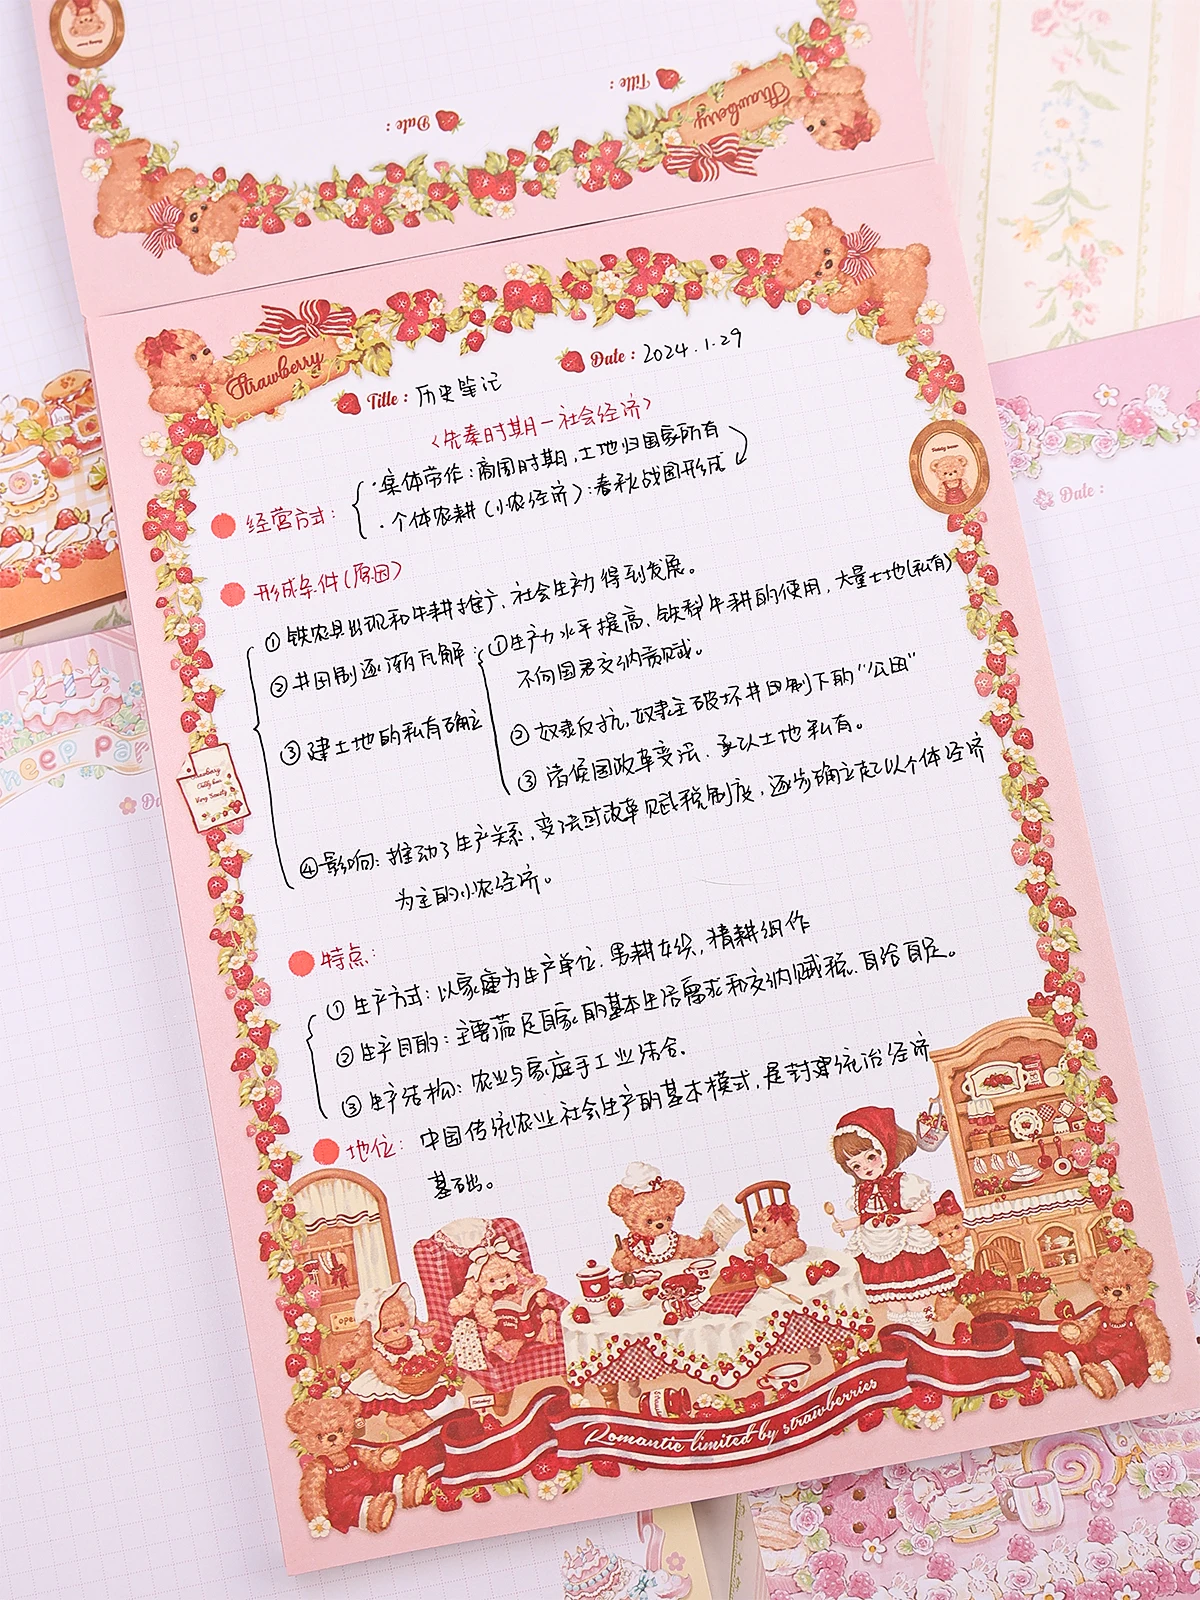 Title :
Date :
Strawberry
Strawberry
Date : 2024.1.29
Title : 历史笔记
<先秦时期—社会经济>
经营方式:
·集体劳作:商周时期,土地归国家所有
·个体农耕(小农经济):春秋战国形成
形成条件(原因)
①铁农具出现和牛耕推广、社会生产力得到发展。
②井田制逐渐瓦解:
①生产力水平提高、铁犁牛耕的使用,大量土地(私有)
不向国君交纳贡赋。
②奴隶反抗,奴隶主破坏井田制下的“公田”
③建土地的私有确立
③诸侯国改革变法、承认土地私有。
④影响:推动了生产关系,变法时改革赋税制度,逐步确立起以个体经济
为主的小农经济。
特点:
①生产方式:以家庭为生产单位、男耕女织,精耕细作
②生产目的:主要满足自家的基本生活需求和交纳赋税、自给自足。
③生产结构:农业与家庭手工业结合.
地位: 中国传统农业社会生产的基本模式,是封建统治经济
基础。
open
Romantic limited by strawberries
Date :